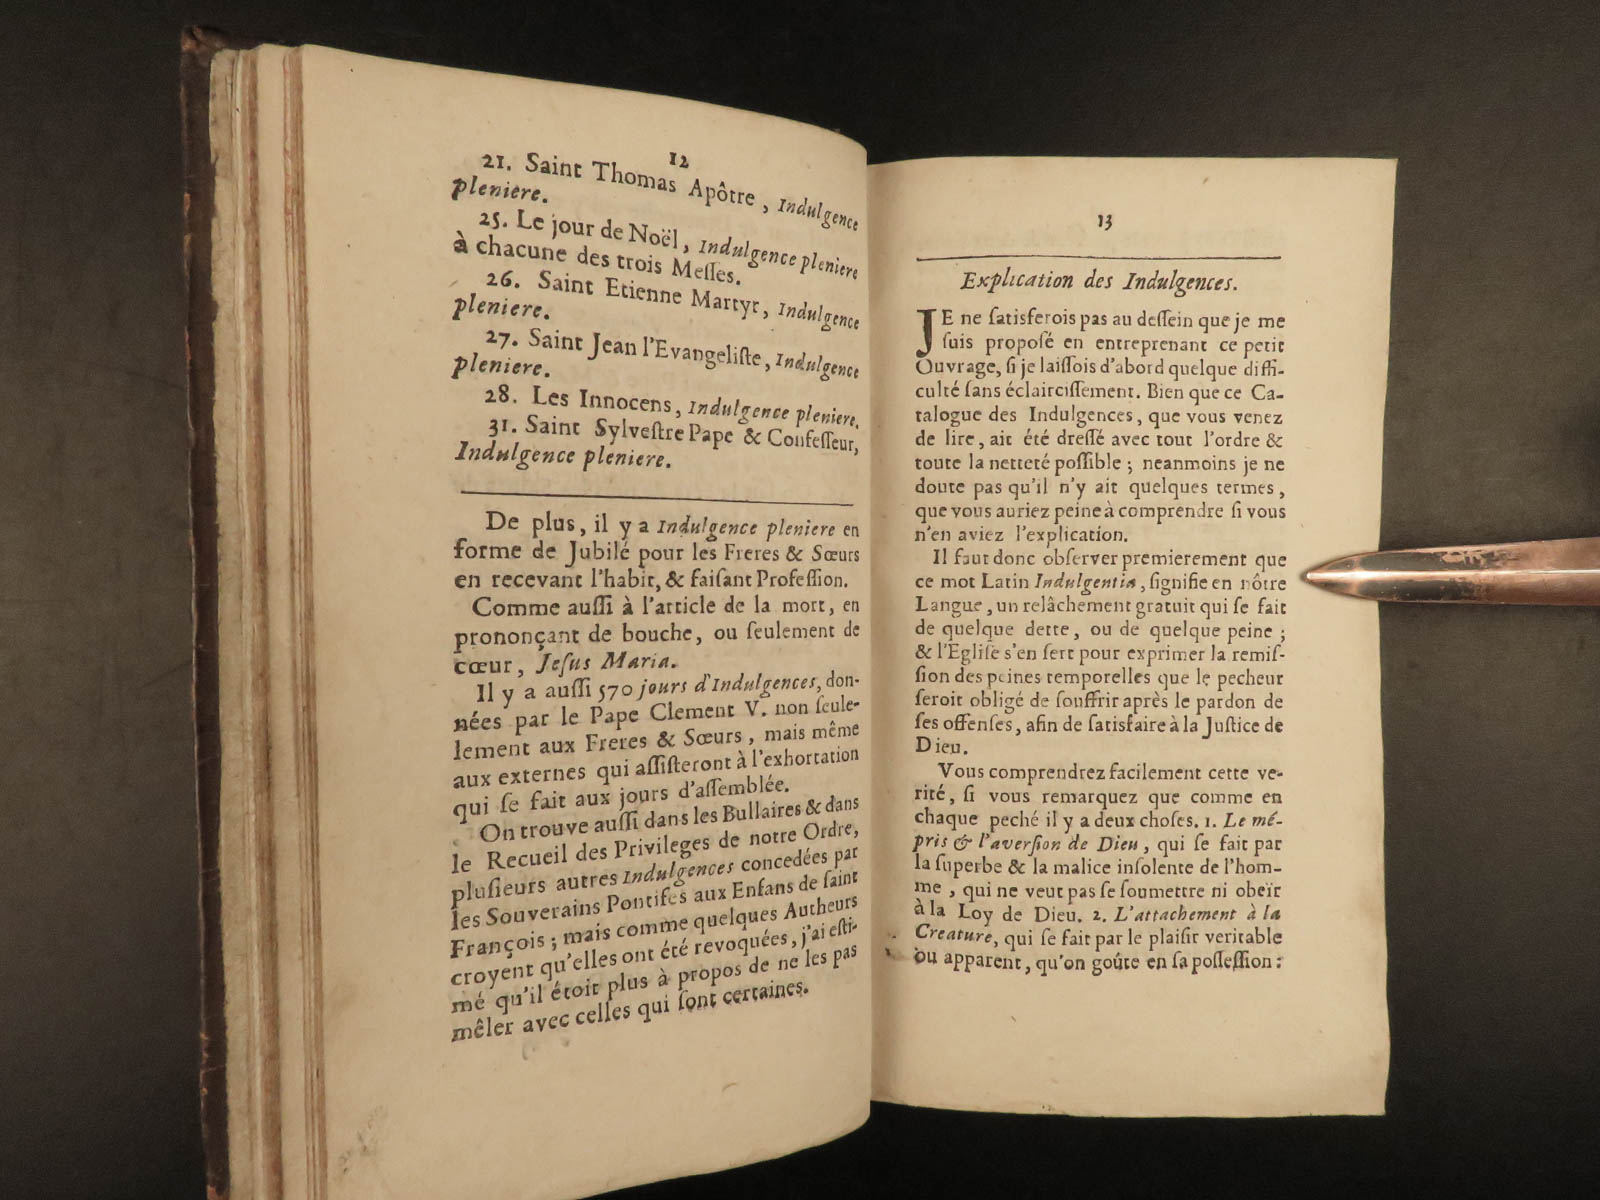 12
21. Saint Thomas Apôtre, Indulgence
pleniere.
25. Le jour de Noël, Indulgence pleniere
à chacune des trois Meſſes.
26. Saint Etienne Martyr, Indulgence
pleniere.
27. Saint Jean l'Evangeliſte, Indulgence
pleniere.
28. Les Innocens, Indulgence pleniere.
31. Saint Sylveſtre Pape & Confeſſeur,
Indulgence pleniere.
De plus, il y a Indulgence pleniere en
forme de Jubilé pour les Freres & Sœurs
en recevant l'habit, & faiſant Profeſſion.
Comme auſſi à l'article de la mort, en
prononçant de bouche, ou ſeulement de
cœur, Jeſus Maria.
Il y a auſſi 570 jours d'Indulgences, don-
nées par le Pape Clement V. non ſeule-
lement aux Freres & Sœurs, mais même
aux externes qui aſſiſteront à l'exhortation
qui ſe fait aux jours d'aſſemblée.
On trouve auſſi dans les Bullaires & dans
le Recueil des Privileges de notre Ordre,
pluſieurs autres Indulgences concedées par
les Souverains Pontifes aux Enfans de ſaint
François ; mais comme quelques Autheurs
croyent qu'elles ont été revoquées, j'ai eſti-
mé qu'il étoit plus à propos de ne les pas
mêler avec celles qui ſont certaines.
13
Explication des Indulgences.
JE ne ſatisferois pas au deſſein que je me
ſuis propoſé en entreprenant ce petit
Ouvrage, ſi je laiſſois d'abord quelque diffi-
culté ſans éclairciſſement. Bien que ce Ca-
talogue des Indulgences, que vous venez
de lire, ait été dreſſé avec tout l'ordre &
toute la netteté poſſible ; neanmoins je ne
doute pas qu'il n'y ait quelques termes,
que vous auriez peine à comprendre ſi vous
n'en aviez l'explication.
Il faut donc obſerver premierement que
ce mot Latin Indulgentia, ſignifie en nôtre
Langue, un relâchement gratuit qui ſe fait
de quelque dette, ou de quelque peine ;
& l'Egliſe s'en ſert pour exprimer la remiſ-
ſion des peines temporelles que le pecheur
ſeroit obligé de ſouffrir après le pardon de
ſes offenſes, afin de ſatisfaire à la Juſtice de
Dieu.
Vous comprendrez facilement cette ve-
rité, ſi vous remarquez que comme en
chaque peché il y a deux choſes. 1. Le mé-
pris & l'averſion de Dieu, qui ſe fait par
la ſuperbe & la malice inſolente de l'hom-
me, qui ne veut pas ſe ſoumettre ni obeïr
à la Loy de Dieu. 2. L'attachement à la
Creature, qui ſe fait par le plaiſir veritable
ou apparent, qu'on goûte en ſa poſſeſſion :